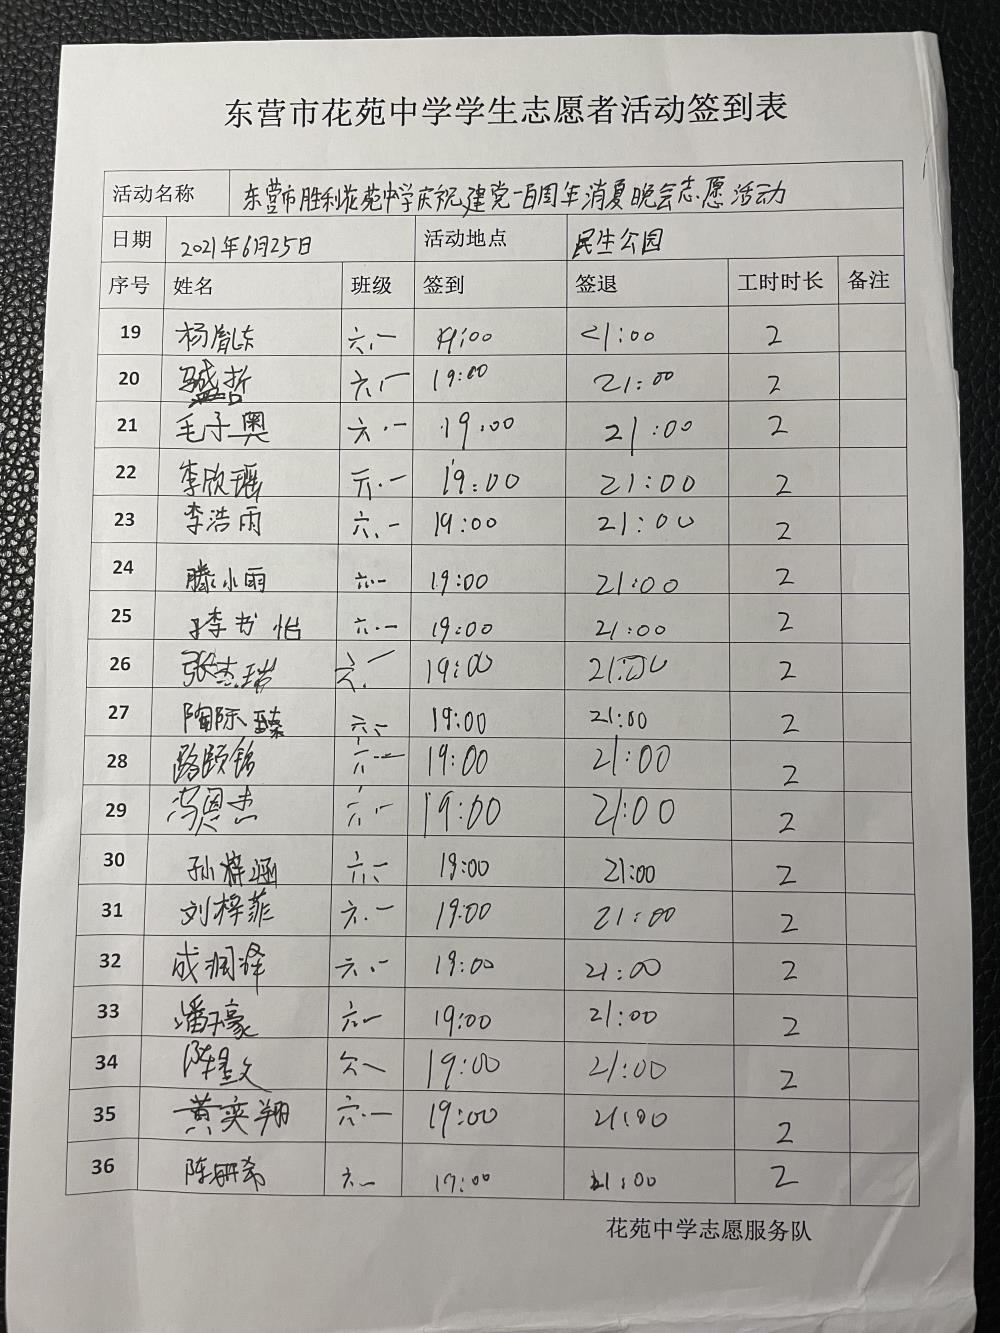 东营市花苑中学学生志愿者活动签到表
活动名称 东营市胜利花苑中学庆祝建党一百周年消夏晚会志愿活动
日期 2021年6月25日 活动地点 民生公园
序号 姓名 班级 签到 签退 工时时长 备注
19 杨胤东 六.一 19:00 21:00 2
20 盛哲 六.一 19:00 21:00 2
21 毛子奥 六.一 19:00 21:00 2
22 李欣瑶 六.一 19:00 21:00 2
23 李浩雨 六.一 19:00 21:00 2
24 滕小雨 六.一 19:00 21:00 2
25 李书怡 六.一 19:00 21:00 2
26 张杰瑞 六.一 19:00 21:00 2
27 陶际臻 六.一 19:00 21:00 2
28 路颐铭 六.一 19:00 21:00 2
29 冯恩杰 六.一 19:00 21:00 2
30 孙梓涵 六.一 19:00 21:00 2
31 刘梓菲 六.一 19:00 21:00 2
32 成润泽 六.一 19:00 21:00 2
33 潘子豪 六一 19:00 21:00 2
34 陈星文 六一 19:00 21:00 2
35 黄奕翔 六.一 19:00 21:00 2
36 陈妍希 六一 19:00 21:00 2
花苑中学志愿服务队